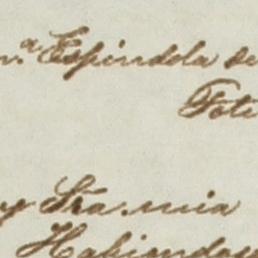 n.ª Espindola de
Toti
y Sra. mia
Habiendo